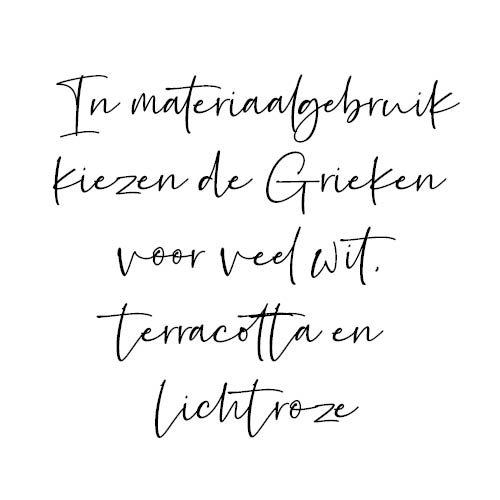 In materiaalgebruik
kiezen de Grieken
voor veel wit,
terracotta en
lichtroze